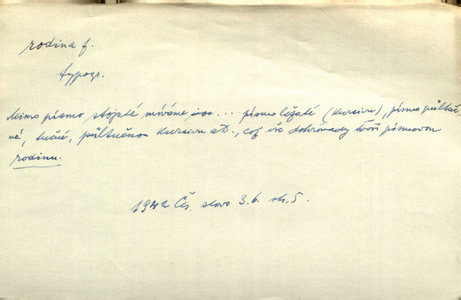 rodina f.
typogr.
Mimo písmo stojaté míváme ... písmo ležaté (kursivu), písmo půltuč
né, tučné, půltučnou kursivu atd., což vše dohromady tvoří písmovou
rodinu.
1942 Čes. slovo 3.6. str. 5.